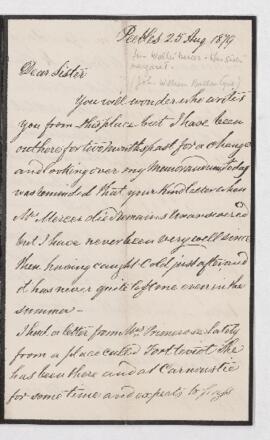 Peebles 25 Aug 1879
Dear Sister
You will wonder who writes
you from this place but I have been
out here for two months past for a change
and looking over my Memorandums today
was reminded that your kind letter when
Mr Mercer died remains unanswered
but I have never been very well since
then having caught cold just after, and
it has never quite left me even in the
summer –
I had a letter from Mrs Primrose lately
from a place called Forteviot She
has been there and at Carnoustie
for some time and expects to